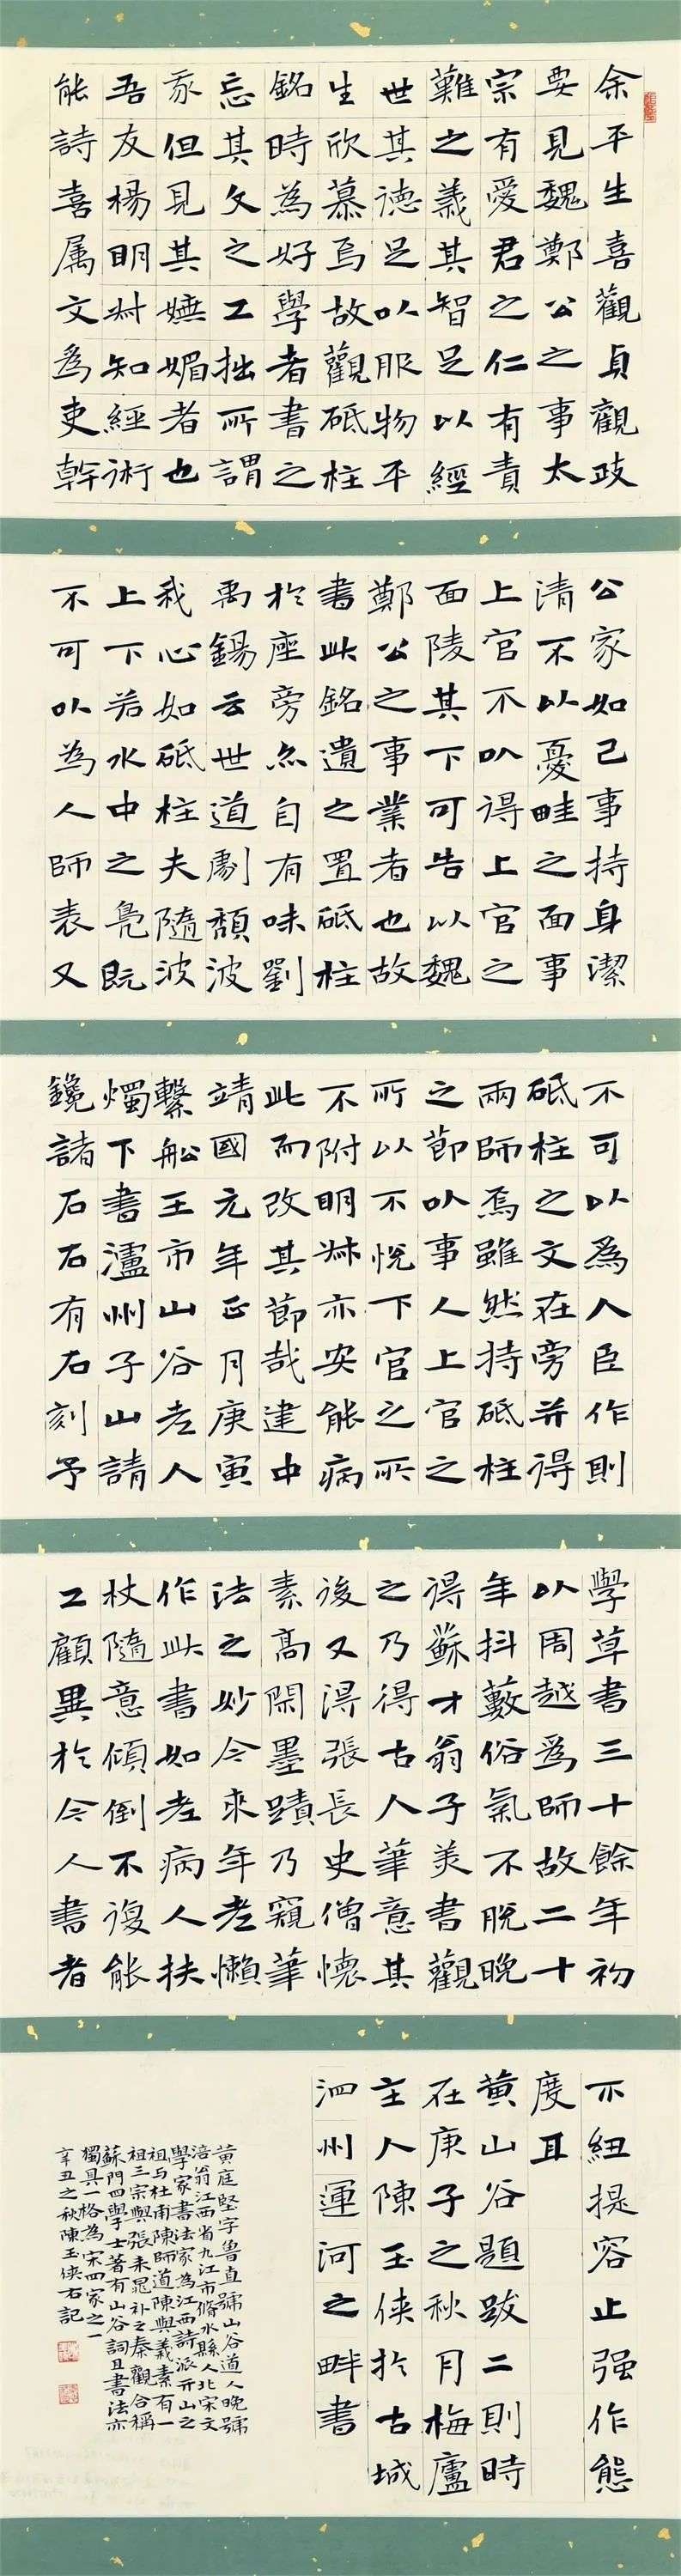 余平生喜觀貞觀政
要見魏鄭公之事太
宗有愛君之仁有責
難之義其智足以經
世其德足以服物平
生欣慕焉故觀砥柱
銘時為好學者書之
忘其文之工拙所謂
我但見其嫵媚者也
吾友楊明叔知經術
能詩喜属文為吏幹
公家如己事持身潔
清不以憂畦之面事
上官不以得上官之
面陵其下可告以魏
鄭公之事業者也故
書此銘遺之置砥柱
於座旁亦自有味劉
禹錫云世道劇頹波
我心如砥柱夫隨波
上下若水中之鳧既
不可以為人師表又
不可以為人臣作則
砥柱之文在旁并得
兩師焉雖然持砥柱
之節以事人上官之
所以不悅下官之所
不附明叔亦安能病
此而改其節哉建中
靖國元年正月庚寅
繫船王市山谷老人
燭下書瀘州子山請
鑱諸石石有石刻予
學草書三十餘年初
以周越為師故二十
年抖藪俗氣不脱晚
得蘇才翁子美書觀
之乃得古人筆意其
後又得張長史僧懷
素高閑墨蹟乃窺筆
法之妙今來年老懶
作此書如老病人扶
杖隨意傾倒不復能
工顧異於今人書者
不紐提容止强作態
度耳
黄山谷題跋二則時
在庚子之秋月梅廬
主人陳玉侠於古城
泗州運河之畔書
黄庭堅字魯直號山谷道人晚號
涪翁江西省九江市脩水縣人北宋文
學家書法家為江西詩派开山之
祖与杜甫陳師道陳與義素有一
祖三宗與張耒晁補之秦觀合稱
蘇門四學士著有山谷詞且書法亦
獨具一格為宋四家之一
辛丑之秋陳玉侠右記